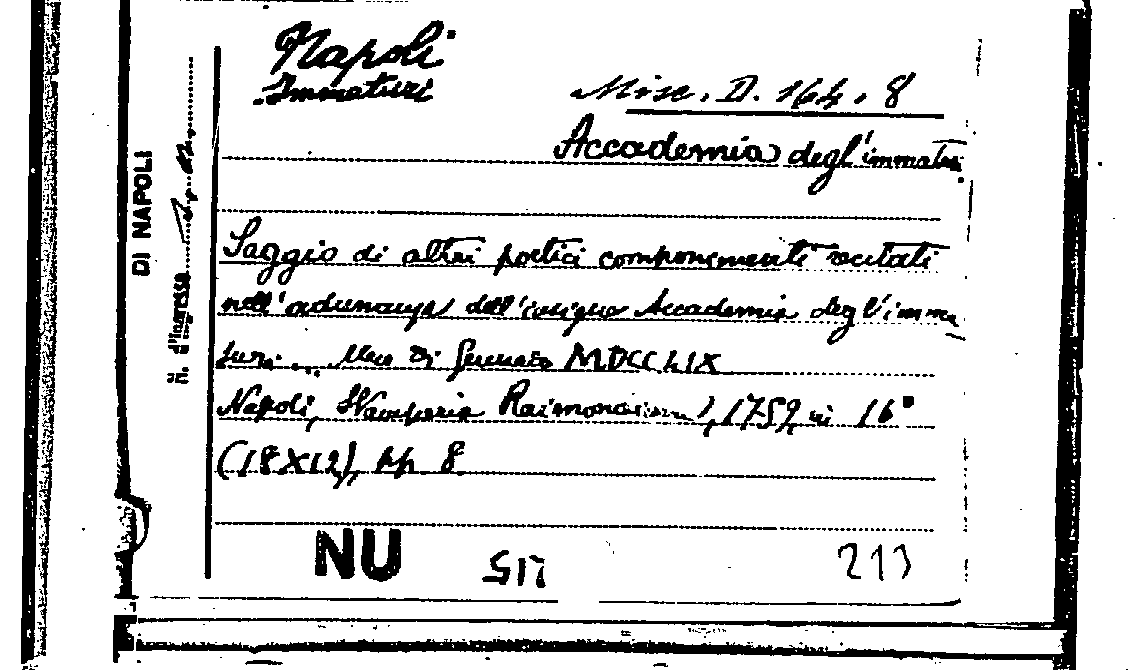 Napoli
Immaturi
Misc. D. 164. 8
Accademia degl'immaturi
DI NAPOLI
N. d'Ingresso
Saggio di altri poetici componimenti recitati
nell'adunanza dell'insigne Accademia degl'imma
turi ... Mese di Gennaio MDCCLIX
Napoli, Stamperia Raimondiana, 1759, in 16°
(18X12), pp 8
NU
SIT
213